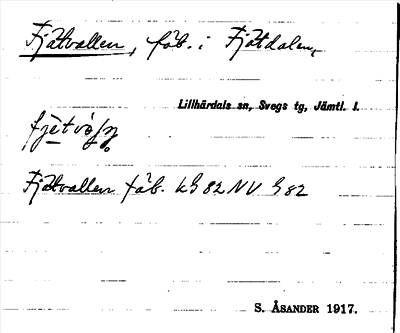 Fjätvallen, fäb. i Fjätdalen,
Lillhärdals sn, Svegs tg, Jämtl. l.
Fjätvallen fäb. kG 82 NV G 82
S. ÅSANDER 1917.